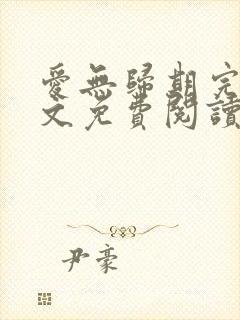 愛無歸期完
文免費閱讀
尹豪